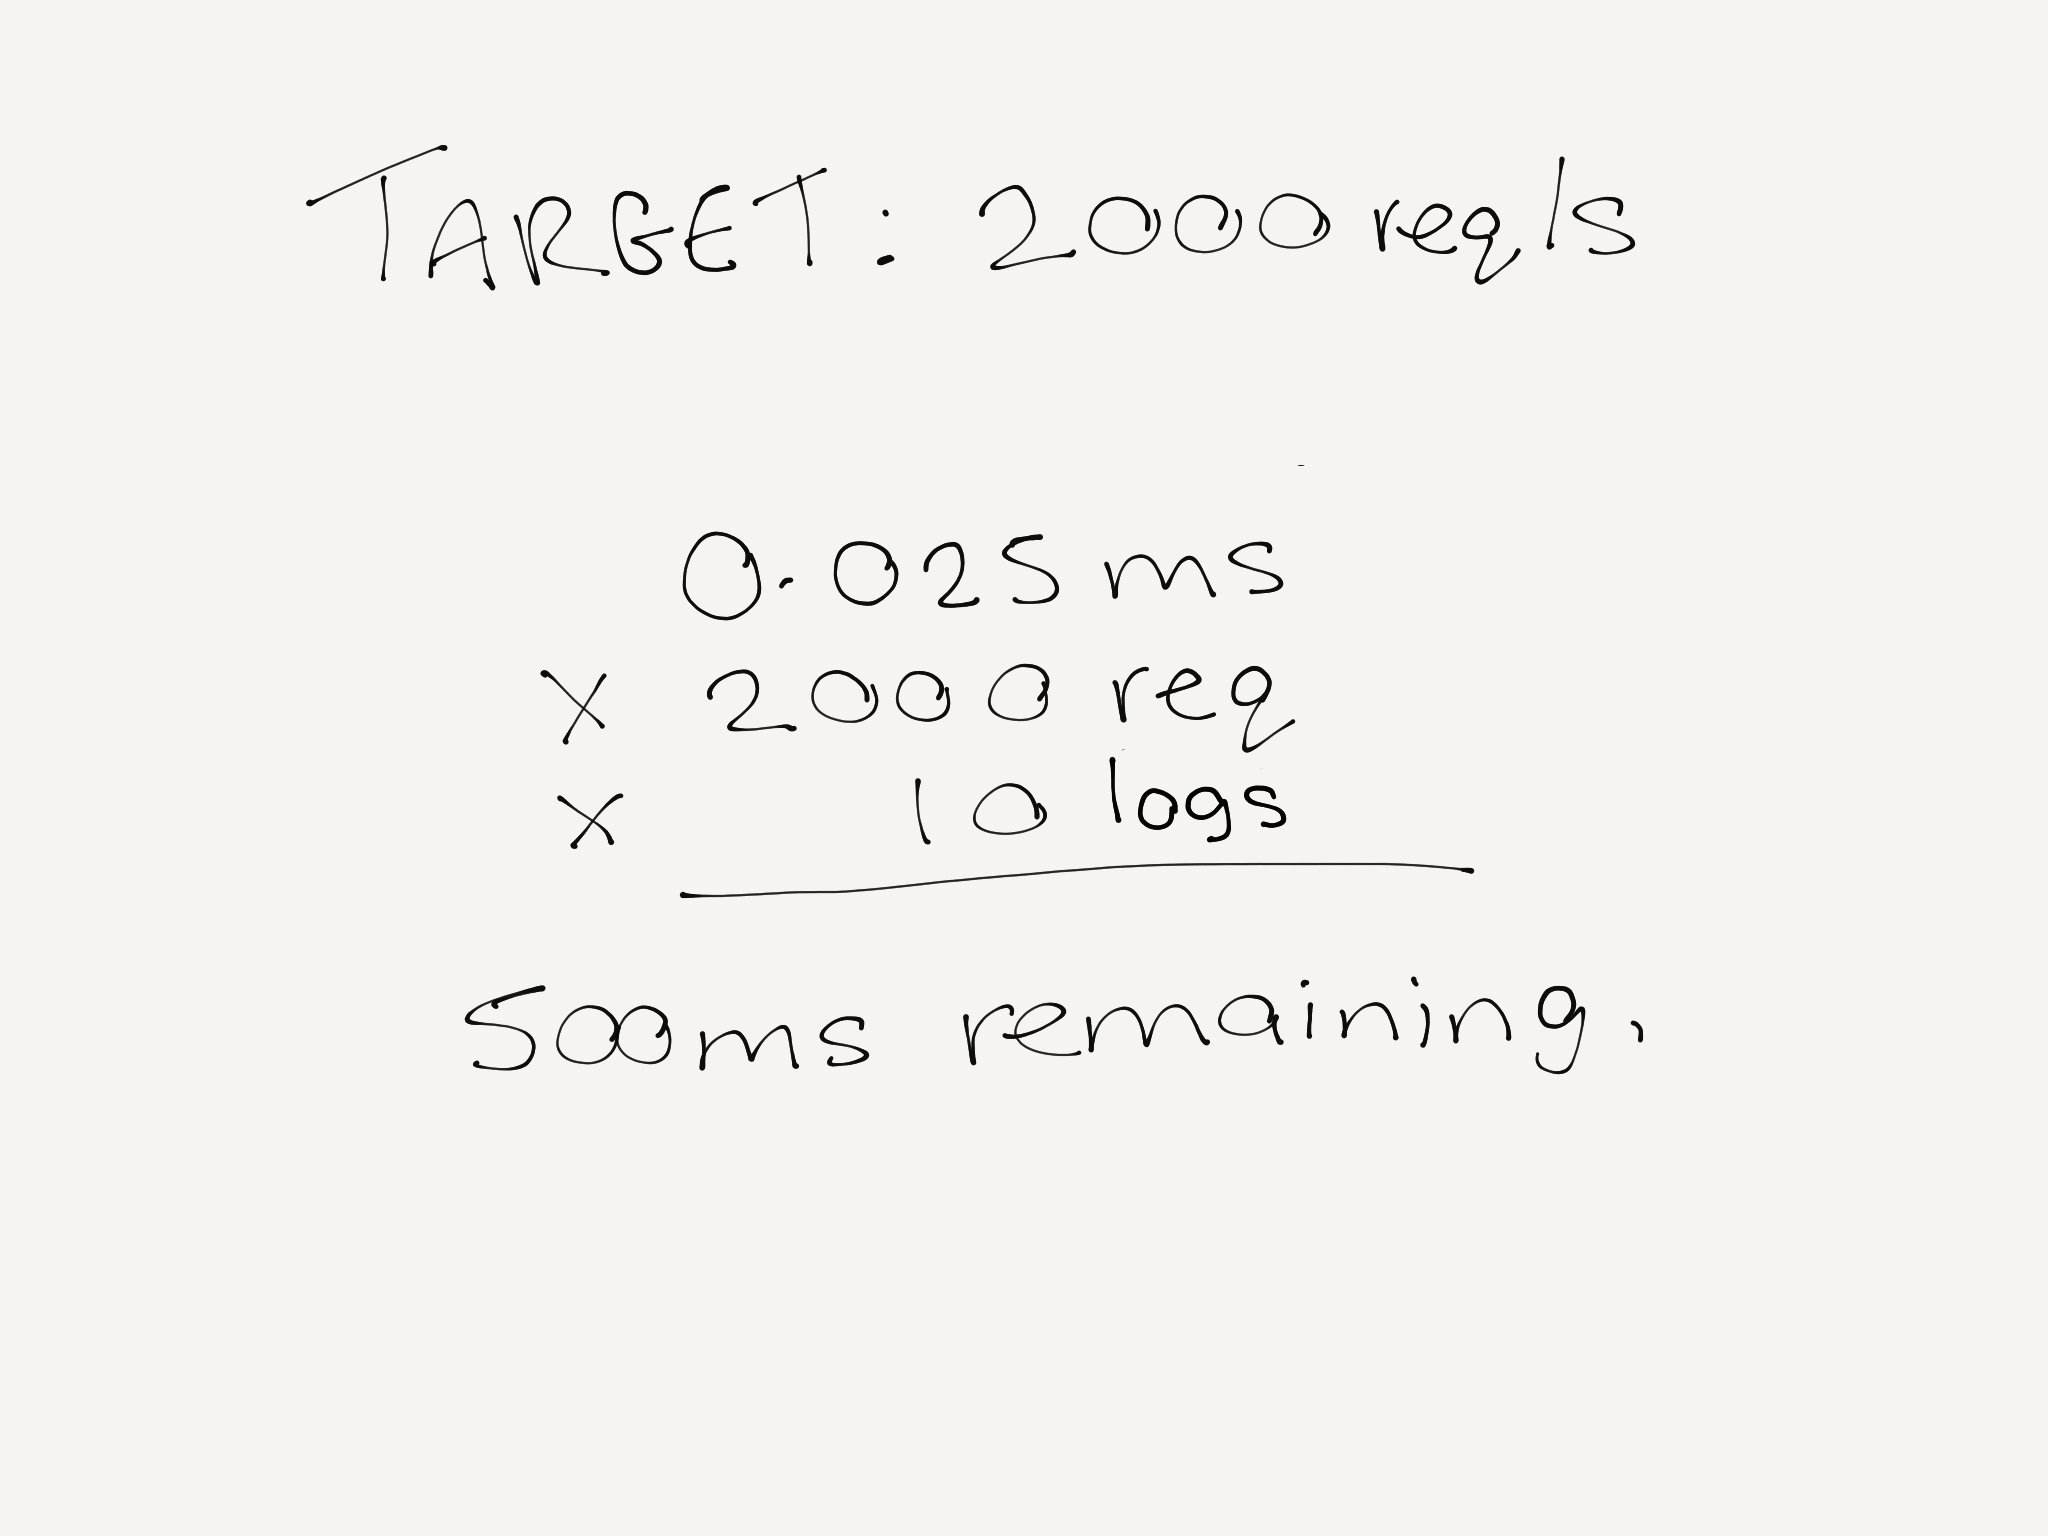 TARGET: 2000 req/s
0.025 ms
x 2000 req
x 10 logs
500ms remaining.